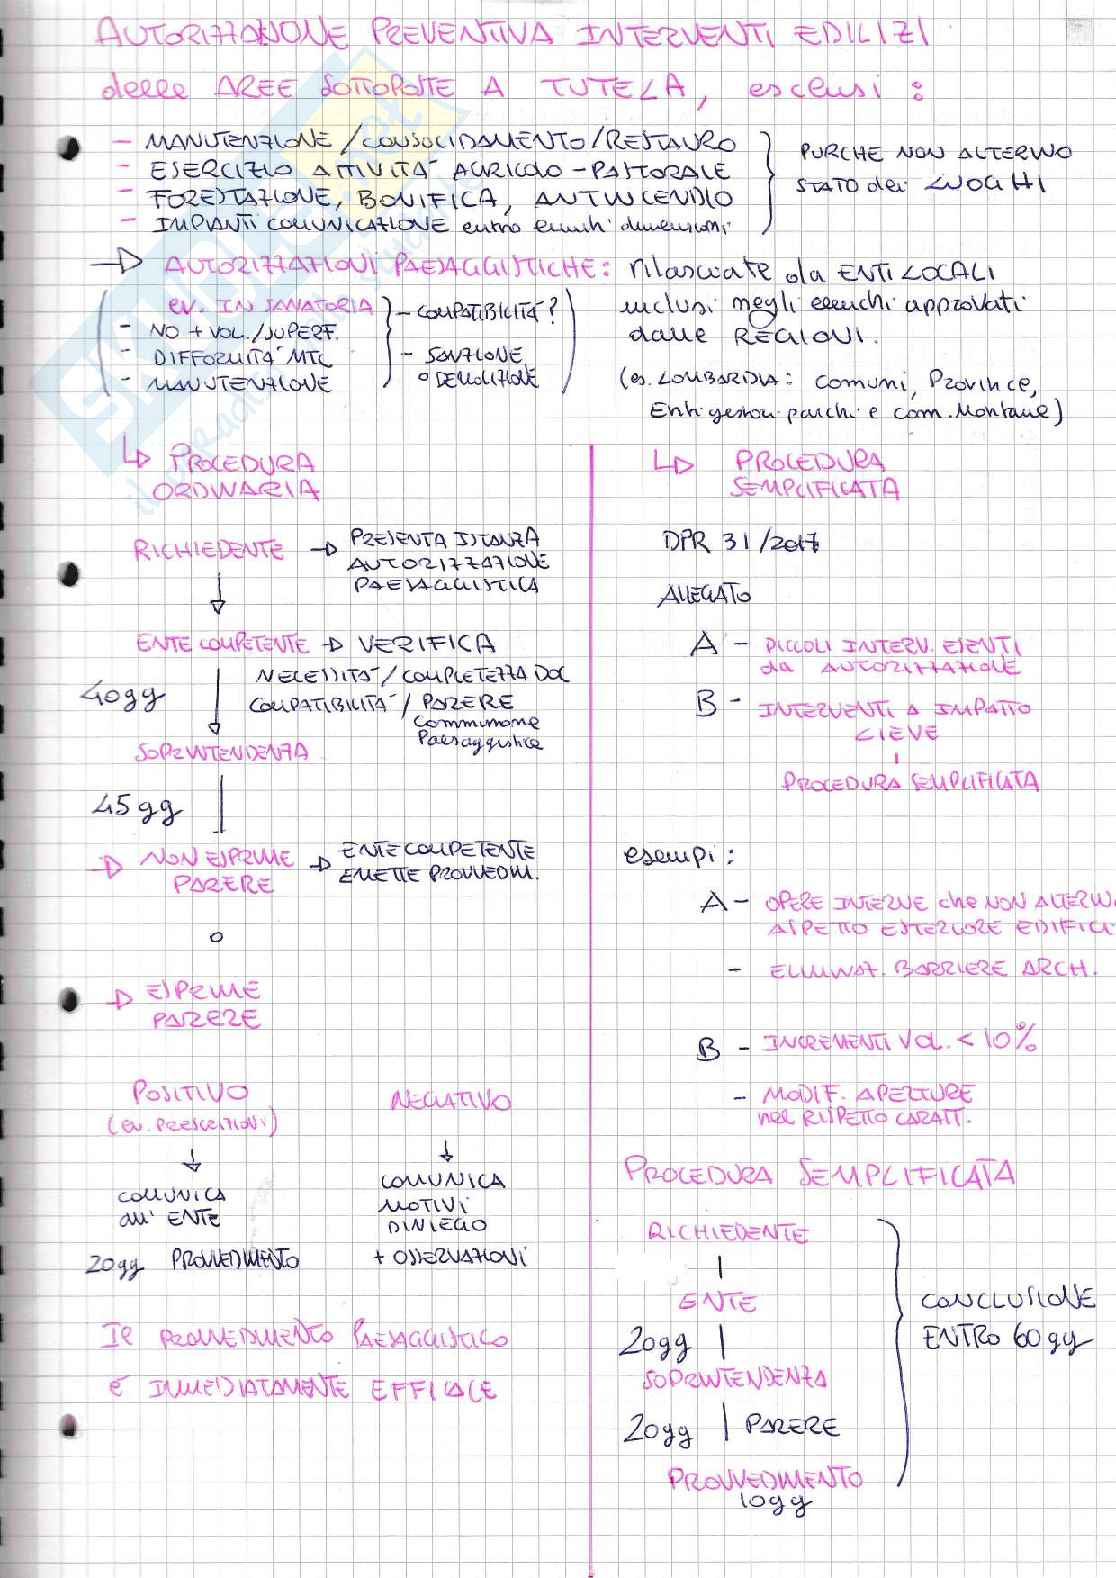 AUTORIZZAZIONE PREVENTIVA INTERVENTI EDILIZI
delle AREE SOTTOPOSTE A TUTELA, esclusi:
- MANUTENZIONE/CONSOLIDAMENTO/RESTAURO
- ESERCIZIO ATTIVITÀ AGRICOLO-PASTORALE
- FORESTAZIONE, BONIFICA, ANTINCENDIO
- IMPIANTI COMUNICAZIONE entro certe dimensioni
PURCHE NON ALTERINO
STATO dei LUOGHI
→ AUTORIZZAZIONI PAESAGGISTICHE: rilasciate da ENTI LOCALI
inclusi negli elenchi approvati
dalle REGIONI.
(es. LOMBARDIA: Comuni, Province,
Enti gestori parchi e com. Montane)
ev. IN SANATORIA
- NO + VOL./SUPERF.
- DIFFORMITÀ MTL
- MANUTENZIONE
- COMPATIBILITÀ?
- SANZIONE
o DEMOLIZIONE
↳ PROCEDURA
ORDINARIA
RICHIEDENTE → PRESENTA ISTANZA
AUTORIZZAZIONE
PAESAGGISTICA
ENTE COMPETENTE → VERIFICA
NECESSITÀ/COMPLETEZZA DOC
40gg
COMPATIBILITÀ/PARERE
Commissione
Paesaggistica
SOPRINTENDENZA
45gg
→ NON ESPRIME
PARERE
→ ENTE COMPETENTE
EMETTE PROVVEDIM.
o
→ ESPRIME
PARERE
POSITIVO
(ev. PRESCRIZIONI)
COMUNICA
all' ENTE
20gg PROVVEDIMENTO
NEGATIVO
COMUNICA
MOTIVI
DINIEGO
+ OSSERVAZIONI
Il PROVVEDIMENTO PAESAGGISTICO
È IMMEDIATAMENTE EFFICACE
↳ PROCEDURA
SEMPLIFICATA
DPR 31/2017
ALLEGATO
A - PICCOLI INTERV. ESENTI
da AUTORIZZAZIONE
B - INTERVENTI A IMPATTO
LIEVE
PROCEDURA SEMPLIFICATA
esempi:
A - OPERE INTERNE che NON ALTERINO
ASPETTO ESTERIORE EDIFICI
- ELIMINAZ. BARRIERE ARCH.
B - INCREMENTI VOL. < 10%
- MODIF. APERTURE
nel RISPETTO CARATT.
PROCEDURA SEMPLIFICATA
RICHIEDENTE
ENTE
20gg
SOPRINTENDENZA
20gg PARERE
PROVVEDIMENTO
10gg
CONCLUSIONE
ENTRO 60gg